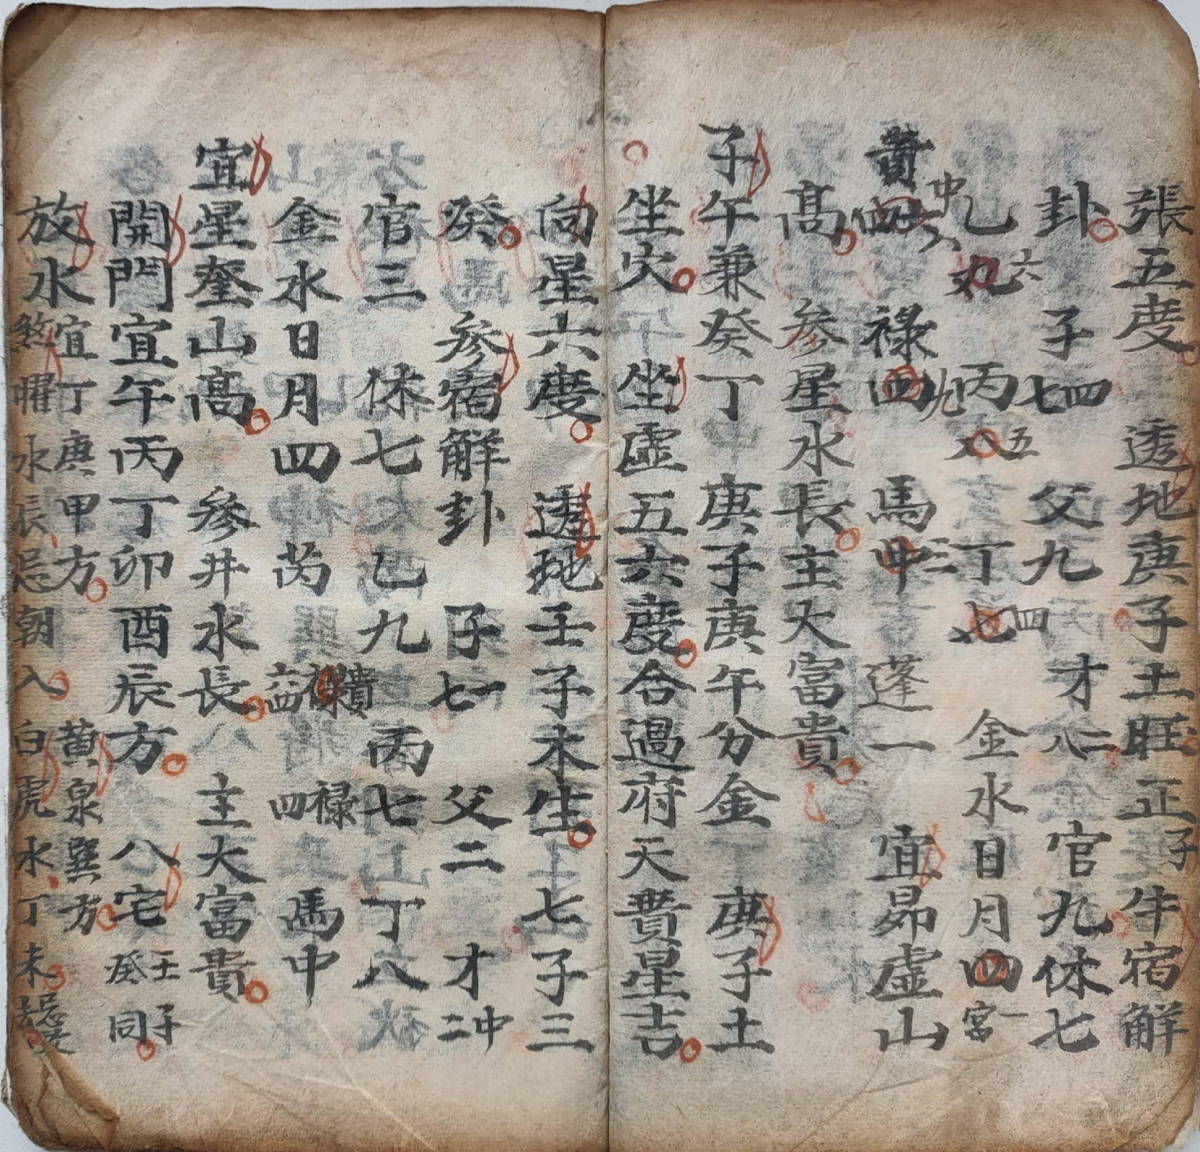 張五度 透地庚子土旺正子牛宿解
卦 子七四 父九 才八二 官九休七
乙六 丙八五 丁七四 金水日月四一宮
貴四中六 祿四九 馬中二 蓬一 宜昴虛山
高 參星水長主大富貴
子午兼癸丁 庚子庚午分金 庚子土
坐穴 坐虛五六度合過府天貴星吉
向星六度 透地壬子木生 七子三
癸 參宿解卦 子七一 父二 才二中
官三 休七 乙九 丙七 丁八
金水日月四 芮 貴 六 祿四 馬中
宜星奎山高 參井水長 主大富貴
開門宜午丙丁卯酉辰方 八宅壬子癸同
放水宜丁庚甲方 黃泉巽方
煞曜水辰忌朝入 白虎水丁未